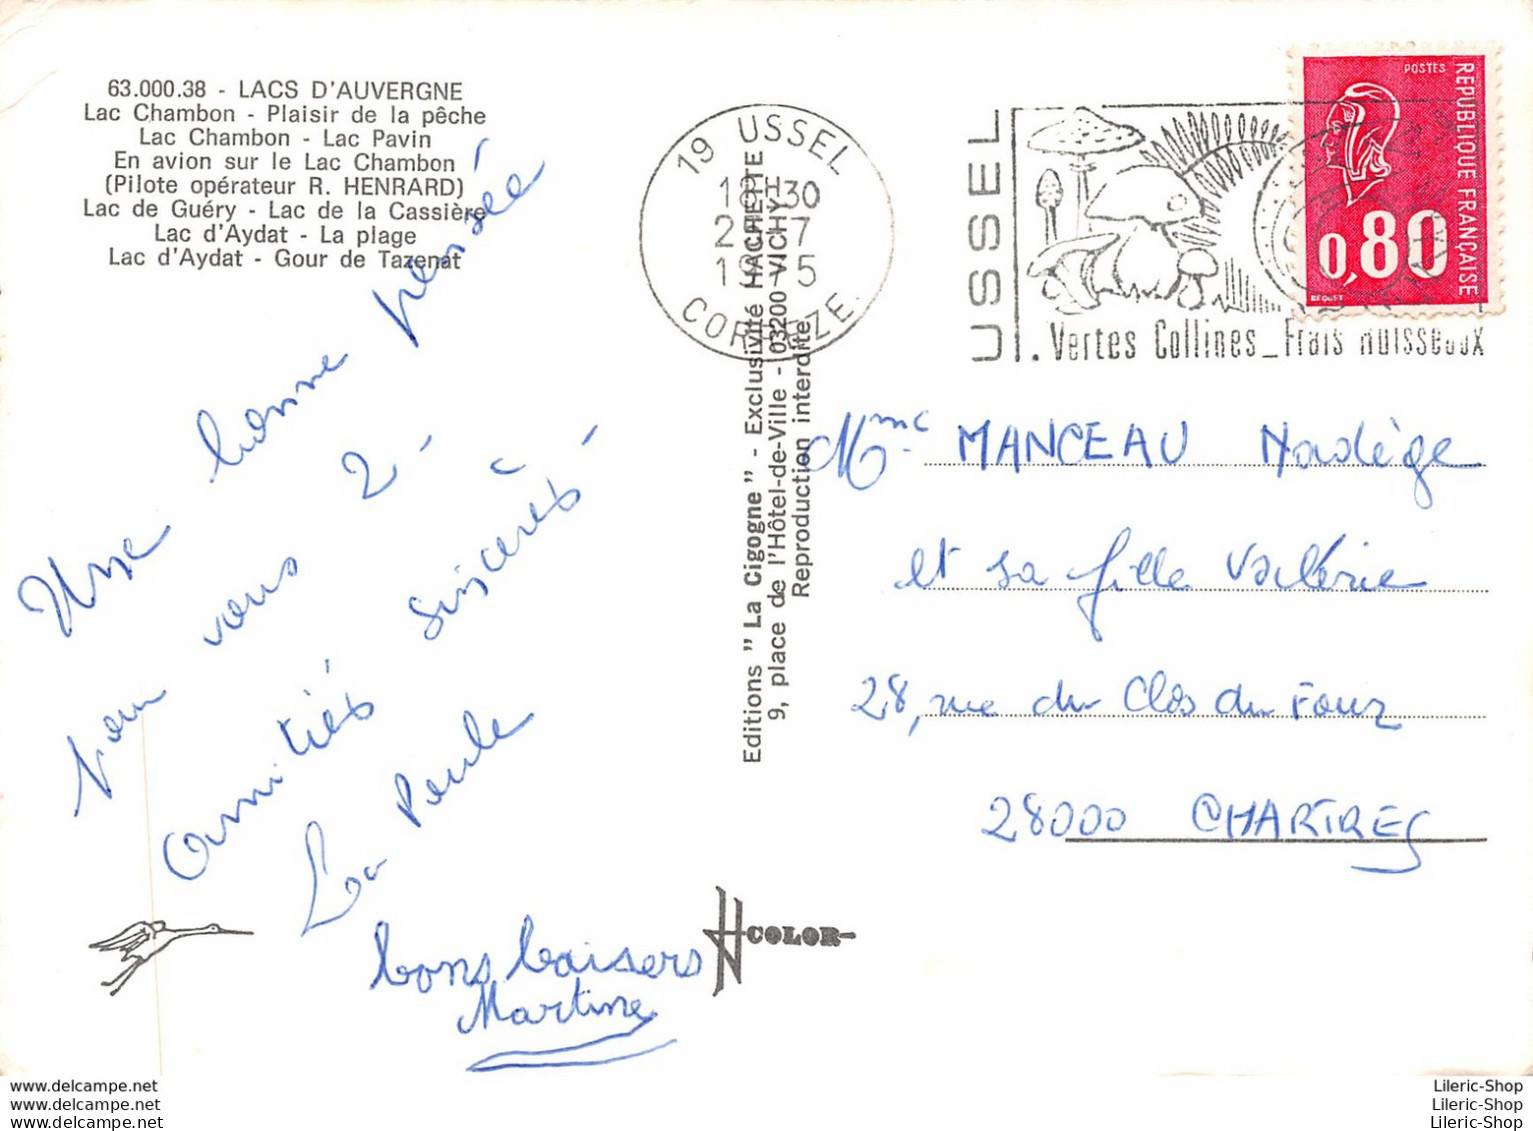 63.000.38 - LACS D'AUVERGNE
Lac Chambon - Plaisir de la pêche
Lac Chambon - Lac Pavin
En avion sur le Lac Chambon
(Pilote opérateur R. HENRARD)
Lac de Guéry - Lac de la Cassière
Lac d'Aydat - La plage
Lac d'Aydat - Gour de Tazenat
Une bonne pensée
pour vous 2 -
Amitiés sincères -
La Poule
bons baisers
Martine
COLOR
Editions " La Cigogne " - Exclusivité HACHETTE
9, place de l'Hôtel-de-Ville - 03200 VICHY
Reproduction interdite
19 USSEL
18H30
CORREZE
USSEL
Vertes Collines _ Frais Ruisseaux
POSTES
REPUBLIQUE FRANÇAISE
0,80
BEQUET
Mme MANCEAU Nadège
et sa fille Valérie
28, rue du Clos du Four
28000 CHARTRES
www.delcampe.net
www.delcampe.net
www.delcampe.net
Lileric-Shop
Lileric-Shop
Lileric-Shop